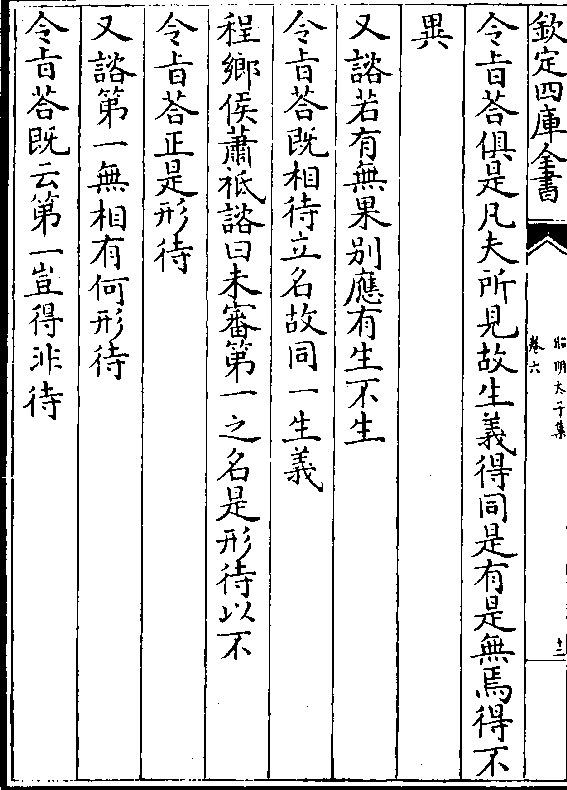 欽定四庫全書
昭明太子集
卷六
十三
令旨荅俱是凡夫所見故生義得同是有是無焉得不
異
又諮若有無果别應有生不生
令旨荅既相待立名故同一生義
程鄉侯蕭祗諮曰未審第一之名是形待以不
令旨荅正是形待
又諮第一無相有何形待
令旨荅既云第一豈得非待